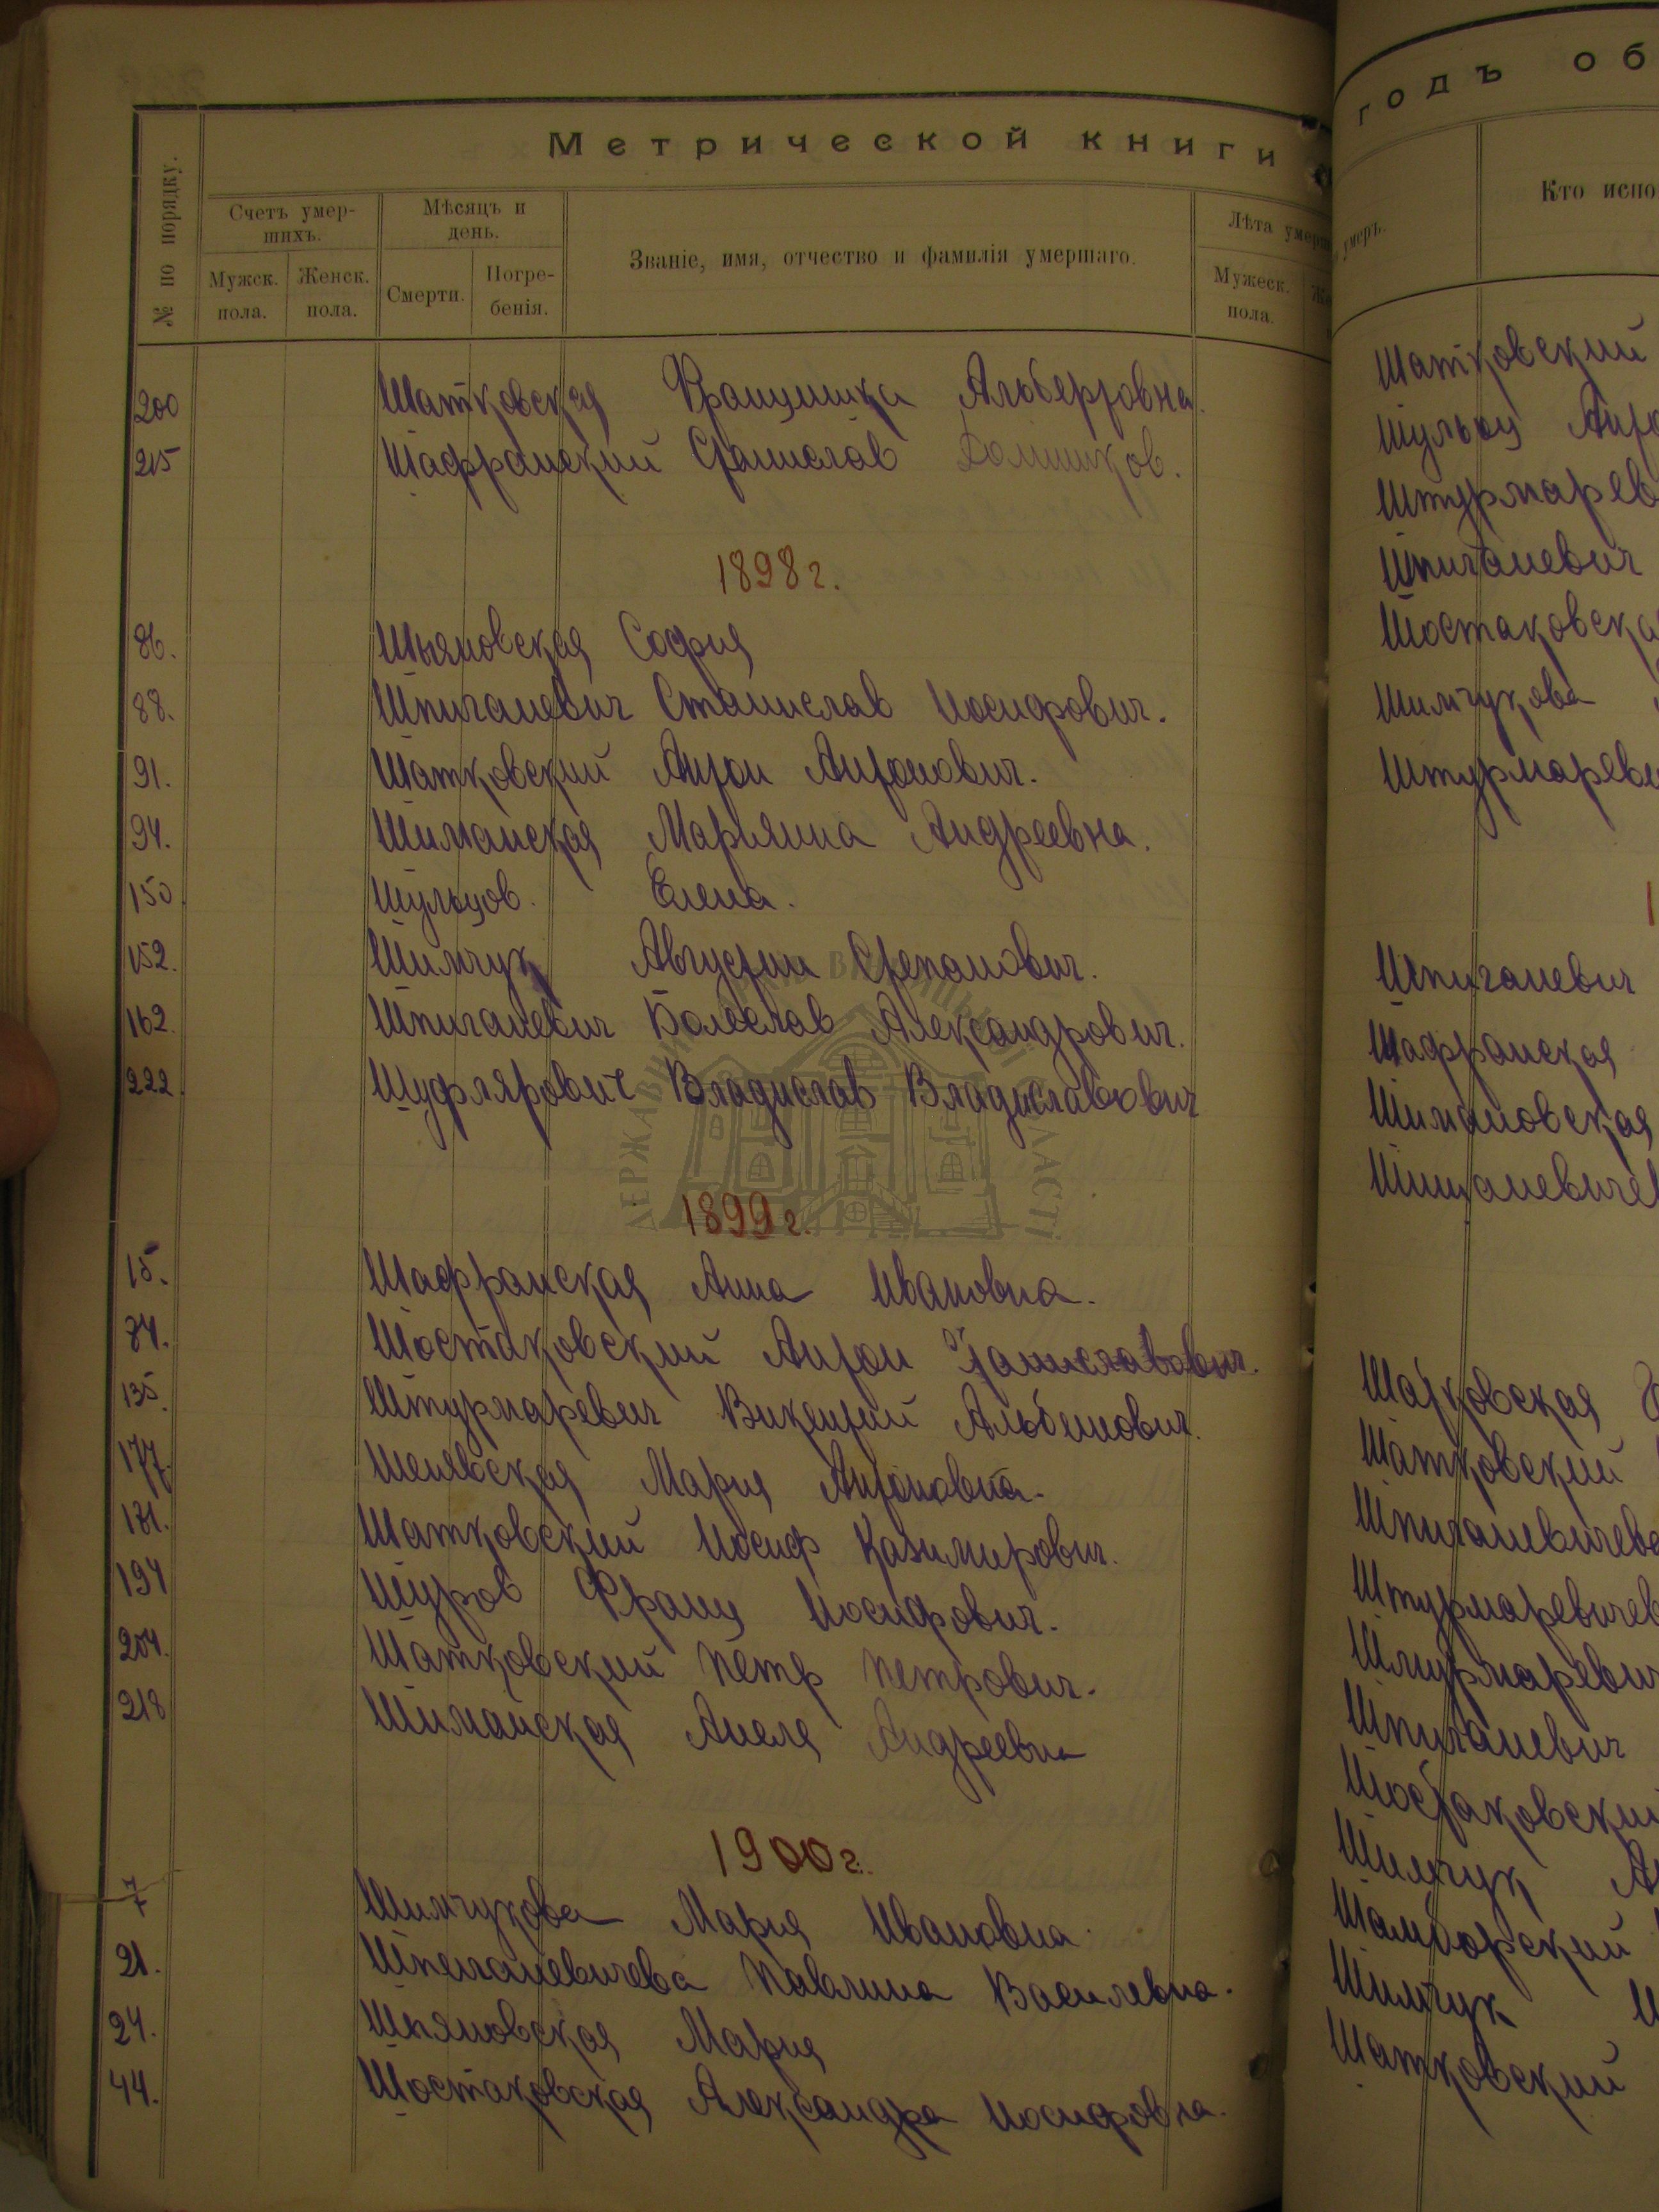 Метрической книги
№ по порядку.
Счетъ умер-
шихъ.
Мужск.
пола.
Женск.
пола.
Мѣсяцъ и
день.
Смерти.
Погре-
бенія.
Званіе, имя, отчество и фамилія умершаго.
Лѣта умерш
Мужеск.
пола.
200 Шатковская Францишка Альбертовна.
215 Шафранский Станислав Домиников.
1898 г.
86. София
88. Шпиганевич Станислав Иосифович.
91. Шатковский Антон Антонович.
94. Шиманская Марьянна Андреевна.
150. Шульцов. Елена.
152. Шимчук Августин Степанович.
162. Шпиганевич Болеслав Александрович.
222. Шуфлярович Владислав Владиславович
1899 г.
15. Шафранская Анна Ивановна.
74. Шостаковский Антон Станиславович.
135. Штурмаревич Викентий Альбинович.
177. Мария Антоновна.
181. Шатковский Иосиф Казимирович.
194 Щуров Франц Иосифович.
204. Шатковский Петр Петрович.
218 Шиманская Анеля Андреевна
1900 г.
7 Шимчукова Мария Ивановна.
21. Шпиганевичева Павлина Василевна.
24. Мария
44. Шостаковская Александра Иосифовна.
годъ об
умеръ.
Кто испо
Шатковский
Шульц Анто
Штурмарев
Шпиганевич
Шостаковская
Шимчукова
Штурмареви
1
Шпиганевич
Шафранская
Шимановская
Шатковская
Шатковский
Шпиганевичева
Штурмаревичев
Штурмаревич
Шпиганевич
Шостаковский
Шимчук А
Шамборский
Шимчук И
Шатковский